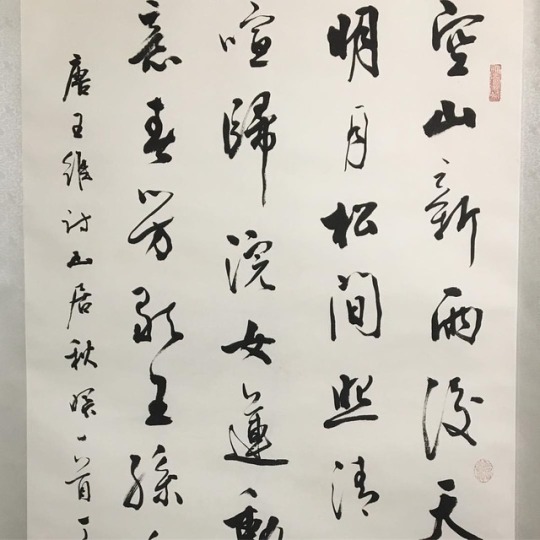 空山新雨後天
明月松間照清
喧歸浣女蓮動
意春芳歇王孫
唐王維詩山居秋暝一首